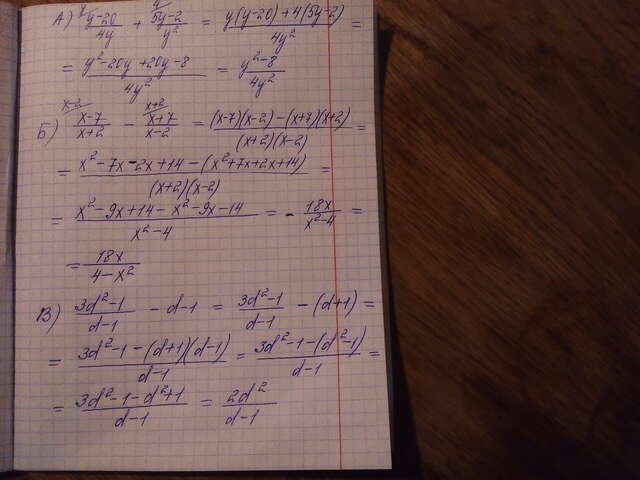 А) y\ (y-20)/4y + 4\ (5y-2)/y² = (y(y-20)+4(5y-2))/4y² =
= (y²-20y+20y-8)/4y² = (y²-8)/4y²
Б) x-2\ (x-7)/(x+2) - x+2\ (x+7)/(x-2) = ((x-7)(x-2)-(x+7)(x+2))/((x+2)(x-2)) =
= (x²-7x-2x+14-(x²+7x+2x+14))/((x+2)(x-2)) =
= (x²-9x+14-x²-9x-14)/(x²-4) = - 18x/(x²-4) =
= 18x/(4-x²)
В) (3d²-1)/(d-1) - d-1 = (3d²-1)/(d-1) - (d+1) =
= (3d²-1-(d+1)(d-1))/(d-1) = (3d²-1-(d²-1))/(d-1) =
= (3d²-1-d²+1)/(d-1) = 2d²/(d-1)